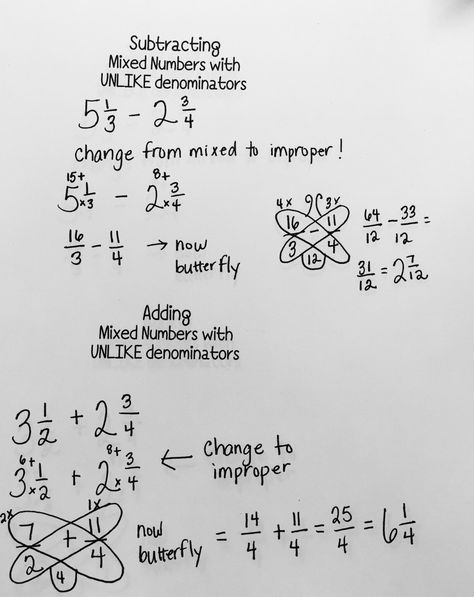 Subtracting
Mixed Numbers with
UNLIKE denominators
5 1/3 - 2 3/4
change from mixed to improper!
15+ 8+
5 1/×3 - 2 3/×4
16/3 - 11/4 → now
butterfly
4x 3x
16/3 - 11/4
12
64/12 - 33/12 =
31/12 = 2 7/12
Adding
Mixed Numbers with
UNLIKE denominators
3 1/2 + 2 3/4
6+ 8+
3 1/×2 + 2 3/×4 ← Change to
improper
2x 1x
7/2 + 11/4
4
now
butterfly
= 14/4 + 11/4 = 25/4 = 6 1/4